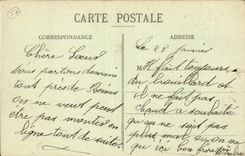 CARTE POSTALE
CORRESPONDANCE
ADRESSE
Chère Sœur
Nous partons demain
tout près de Reims
on ne veut peut
être pas monter en
ligne tout de suite
Le 28 janvier
Il fait toujours
du brouillard et
il ne fait pas
chaud a souhaité
qu'on ne soit pas
plus mal qu'on
ici bon